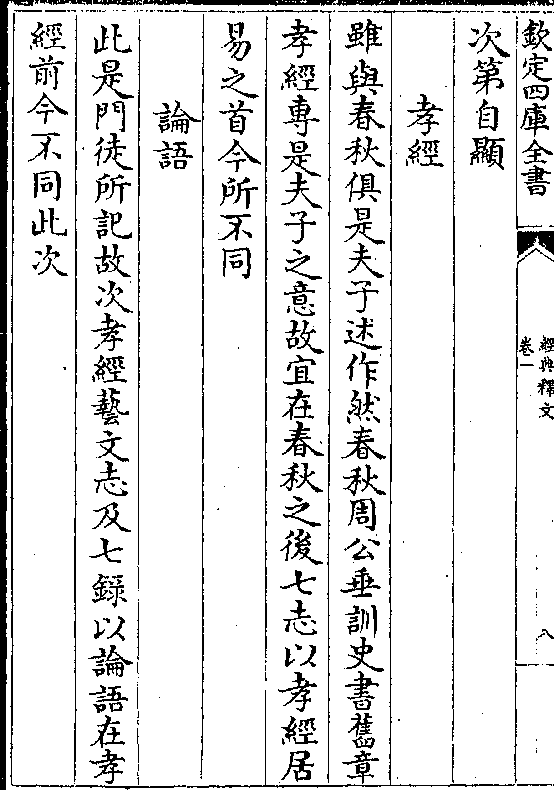 欽定四庫全書
經典釋文
卷一
八
次第自顯
孝經
雖與春秋俱是夫子述作然春秋周公垂訓史書舊章
孝經專是夫子之意故宜在春秋之後七志以孝經居
易之首今所不同
論語
此是門徒所記故次孝經藝文志及七錄以論語在孝
經前今不同此次